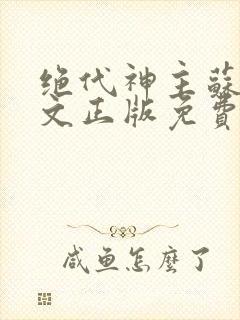 绝代神主蘇
文正版免費
咸鱼怎麼了